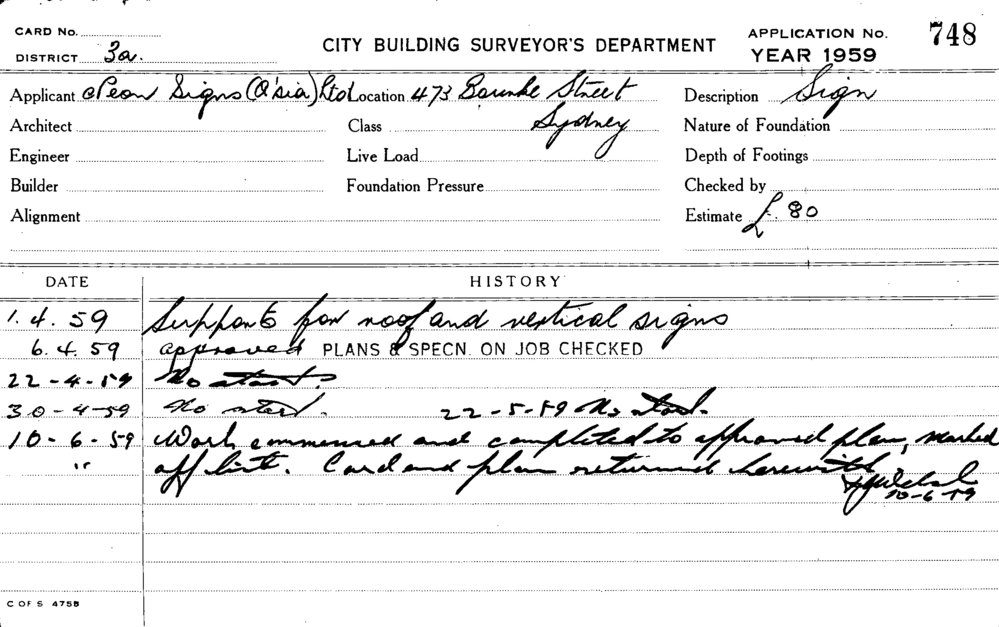 CARD No.
DISTRICT 3a.
CITY BUILDING SURVEYOR'S DEPARTMENT
APPLICATION No. 748
YEAR 1959
Applicant Neon Signs (A'sia) Ltd Location 473 Bourke Street Description Sign
Architect Class Sydney Nature of Foundation
Engineer Live Load Depth of Footings
Builder Foundation Pressure Checked by
Alignment Estimate £. 80
DATE HISTORY
1. 4. 59 Supports for roof and vertical signs
6. 4. 59 approved PLANS & SPECN. ON JOB CHECKED
22-4-59 No start.
30-4-59 No start. 22-5-59 No start.
10-6-59 Work commenced and completed to approved plan, marked
" off list. Card and plan returned herewith.
10-6-59
C OF S 475B